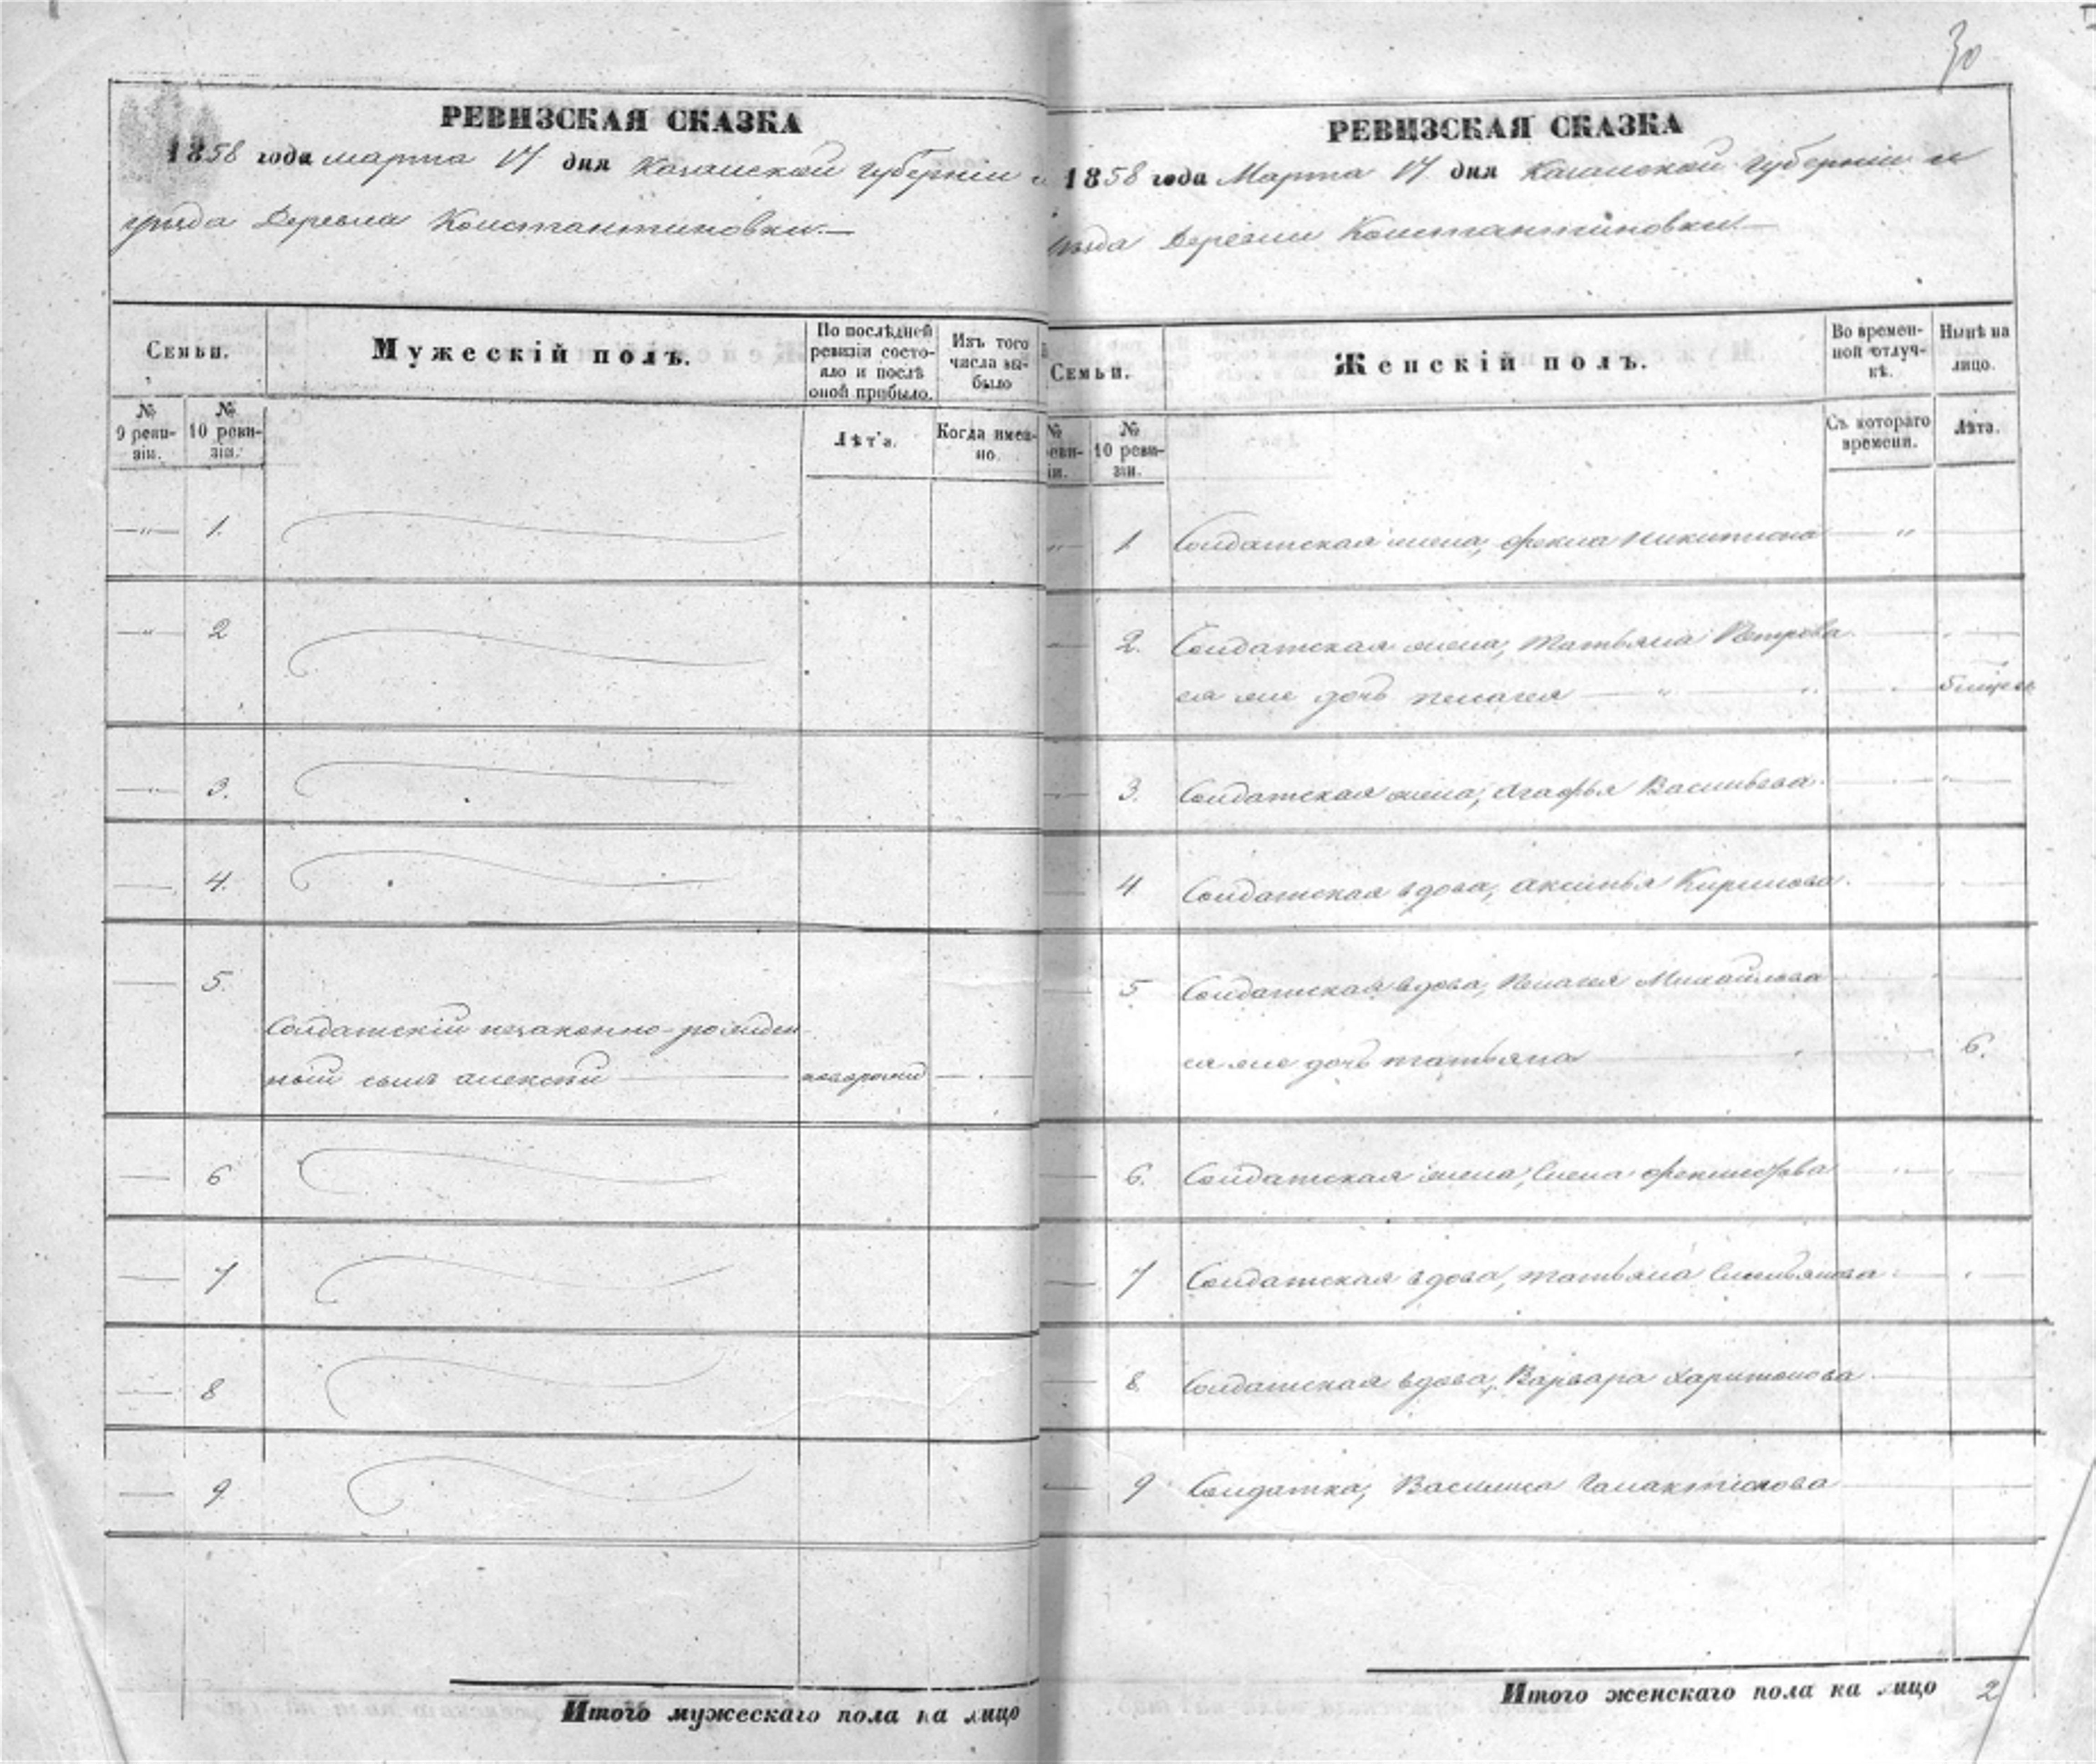 30
РЕВИЗСКАЯ СКАЗКА
1858 года марта 17 дня Казанской губерніи и
уѣзда Деревни Константиновки.—
Семьи.
Мужескій полъ.
По послѣдней ревизіи состояло и послѣ оной прибыло.
Изъ того числа выбыло
№ 9 ревизіи.
№ 10 ревизіи.
Лѣта.
Когда именно.
— " — 1.
— " — 2
— " — 3.
— 4.
— 5.
Солдатскій незаконно-рожден
ный сынъ Алексѣй —
— 6
— 7
— 8
— 9
Итого мужескаго пола на лицо
РЕВИЗСКАЯ СКАЗКА
1858 года Марта 17 дня Казанской губерніи и
уѣзда Деревни Константиновки.—
Семьи.
Женскій полъ.
Во временной отлучкѣ.
Нынѣ на лицо.
№ 10 ревизіи.
Съ котораго времени.
Лѣта.
1 Солдатская жена, Фекла Никитина — " —
2. Солдатская жена, Татьяна Петрова
ея же дочь Пелагея — "
3. Солдатская жена, Агафья Васильева.
4 Солдатская вдова, Аксинья Кирилова.
5 Солдатская вдова, Пелагея Михайлова
ея же дочь Татьяна — 6.
6. Солдатская жена, Елена
7 Солдатская вдова, Татьяна
8. Солдатская вдова, Варвара Харитонова
9 Солдатка, Василиса Галактіонова
Итого женскаго пола на лицо 2